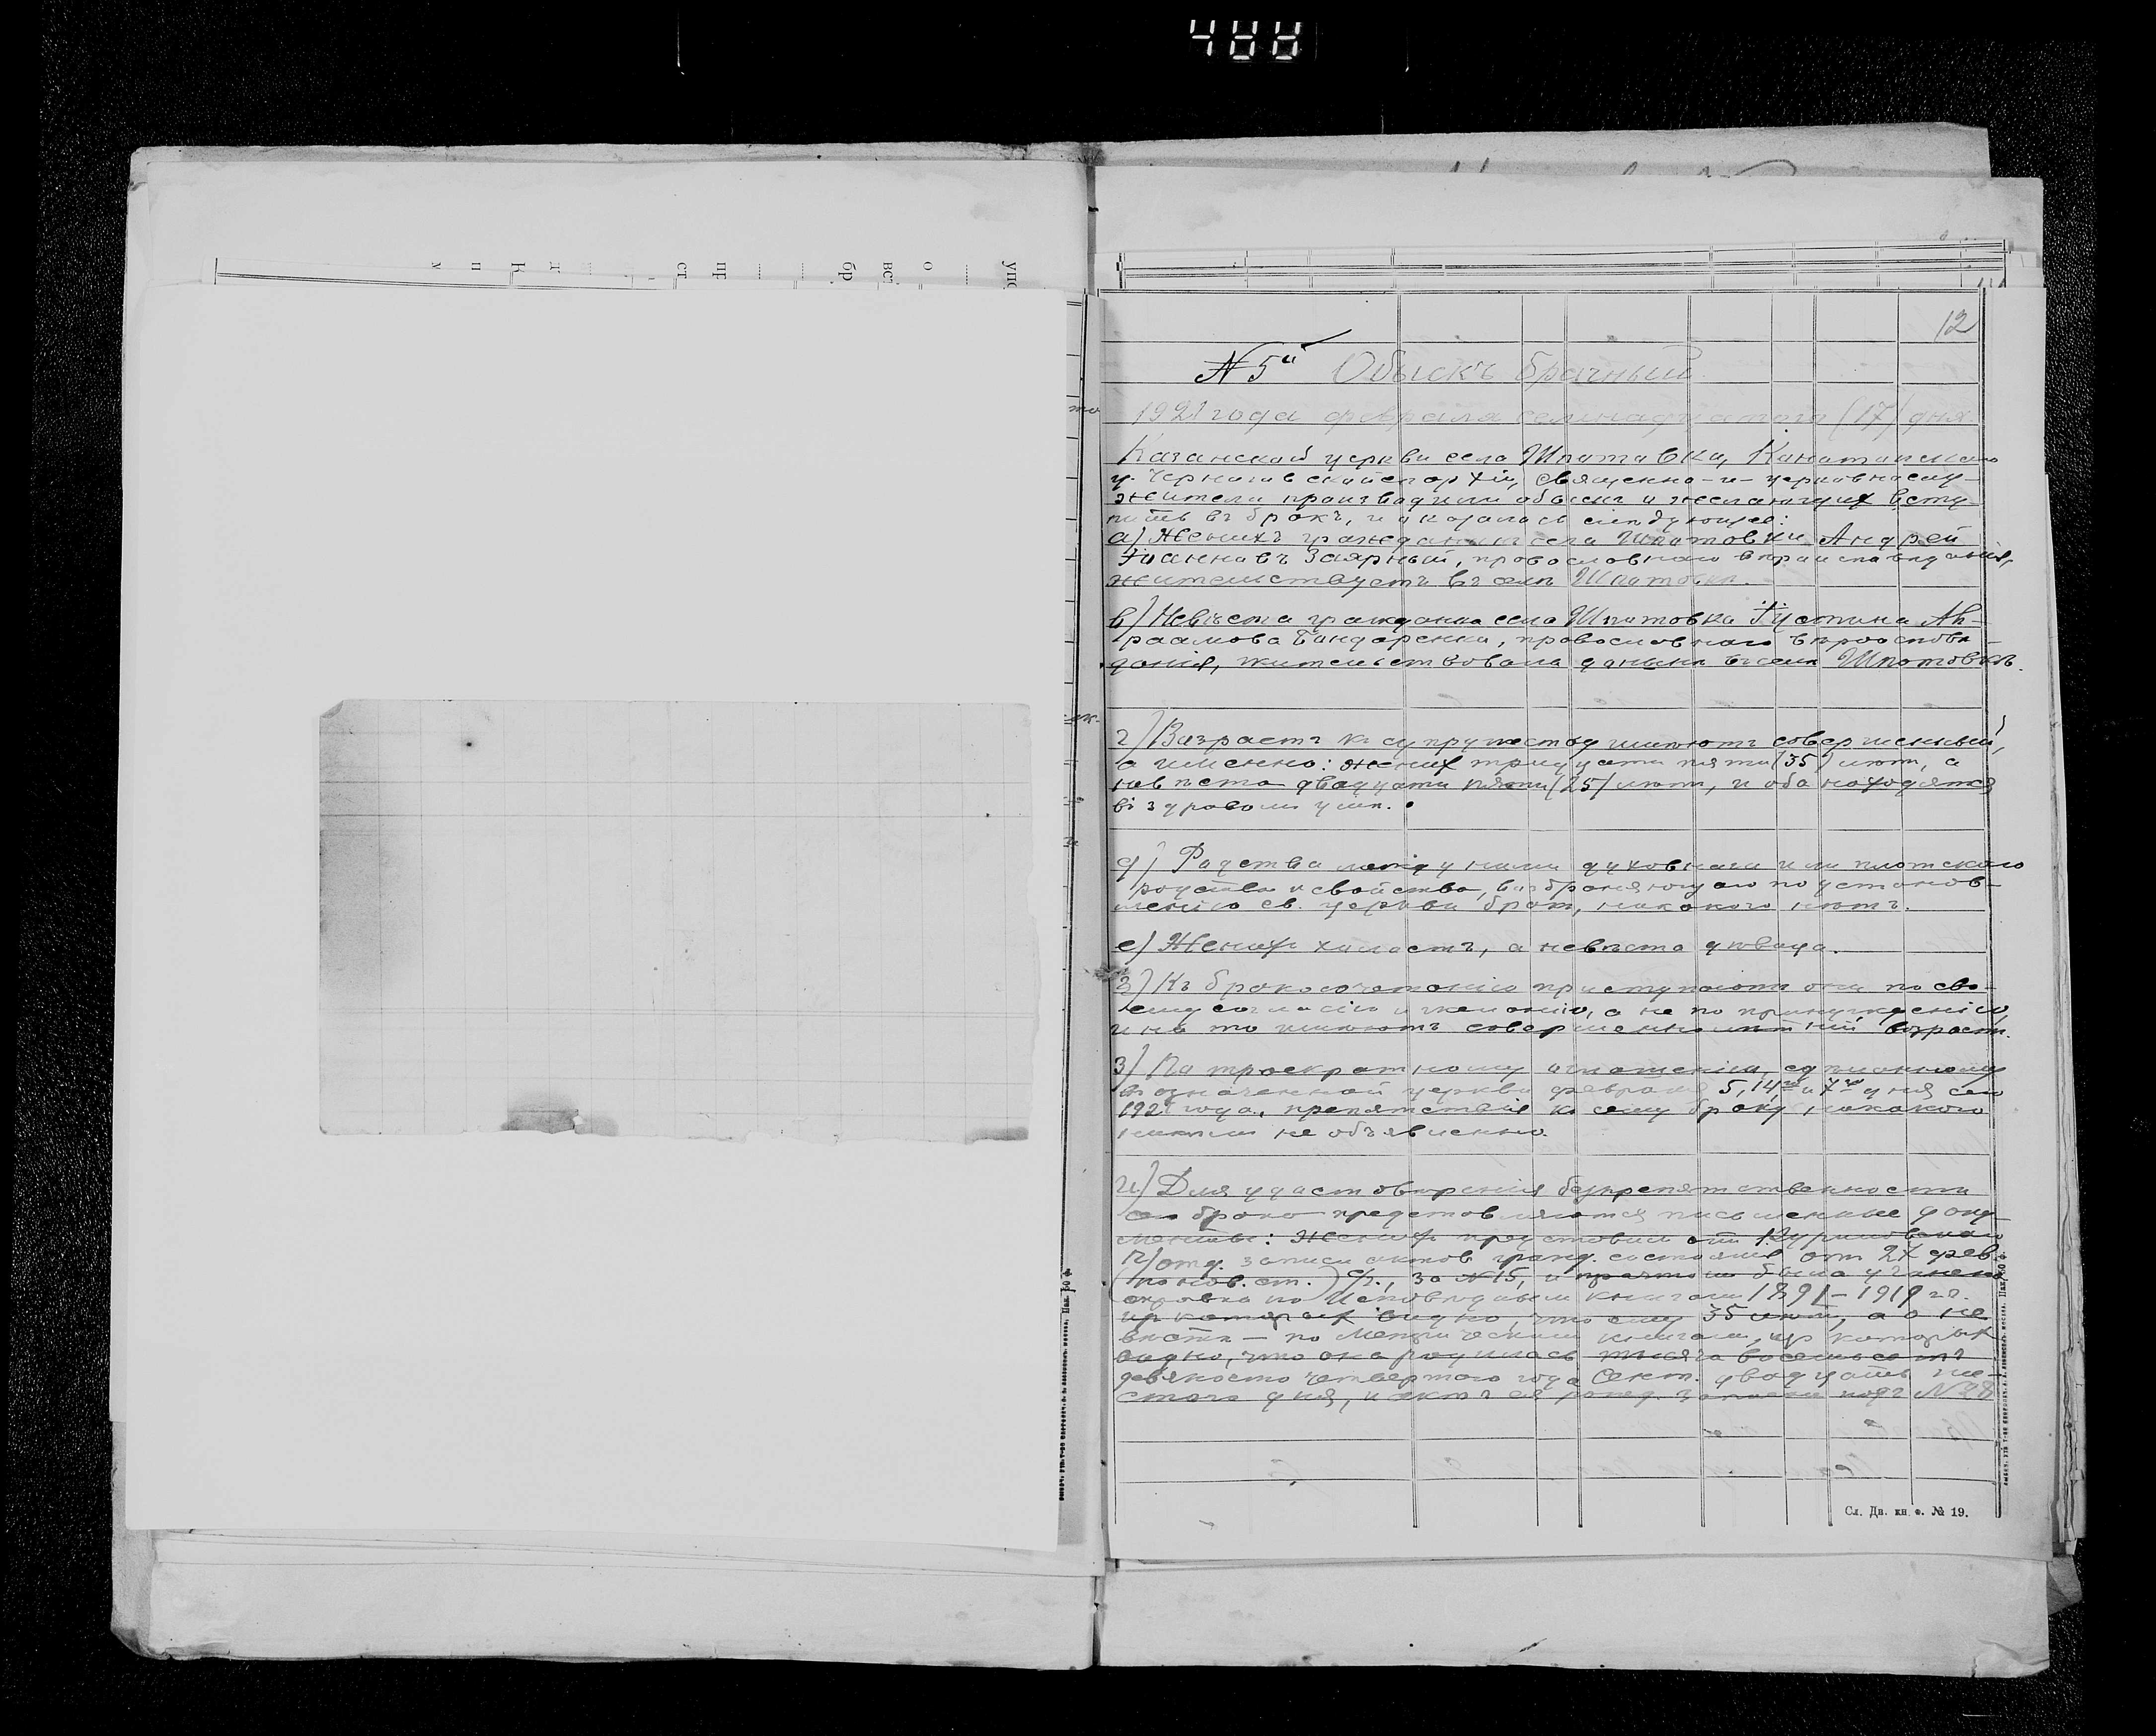 12
№ 5й Обыскъ брачный
1921 года февраля семнадцатого (17) дня
Казанской церкви села Шпотовка, Конотопского
у. Черниговской епархіи, священно-и-церковнослу-
жители производили обыскъ о желающих всту-
пить въ бракъ, и оказалось слѣдующее:
а) Женихъ гражданинъ села Шпотовки Андрей
Іоанновъ Заярный, православнаго вѣроисповѣданія,
жительствуетъ въ селѣ Шпотовкѣ.
в) Невѣста гражданка села Шпотовка Іустина Ав-
раамова Бондаренко, православнаго вѣроисповѣ-
данія, жительствовала донынѣ въ селѣ Шпотовкѣ.
г) Возрастъ къ супружеству имѣютъ совершенный,
а именно: жених тридцати пяти (35) лѣтъ, а
невѣста двадцати пяти (25) лѣтъ, и оба находятся
въ здравомъ умѣ.
д) Родства между ними духовнаго или плотскаго
родства и свойства, возбраняющаго по установ-
ленію св. церкви брак, никакого нѣтъ.
е) Жених холостъ, а невѣста дѣвица.
з) Къ бракосочетанію приступаютъ они по сво-
ему согласію и желанію, а не по принужденію,
и на то имѣютъ совершеннолѣтній возраст.
3) По троекратному оглашенію, сдѣланному
въ означенной церкви февраля 5, 14, и 7го дня сего
1921 года, препятствія къ сему браку никакого
никѣмъ не объявлено.
и) Для удостовѣренія безпрепятственности
сего брака представляются письменные доку-
менты: жених представил от
п/отд. записи актов гражд. состоянія от 24 фев.
(по нов. ст.) с/г., за № 15, и была учинена
справка по Исповѣднымъ книгамъ 1891-1919 гг.
из которых видно, что ему 35 лѣт, а о не-
вѣстѣ - по Метрическимъ книгамъ, из которых
видно, что она родилась тысяча восемьсотъ
девяносто четвертого года Сент. двадцать ше-
стого дня, и актъ ея рожд. записан подъ № 28
Сл. Дв. кн. ф. № 19.